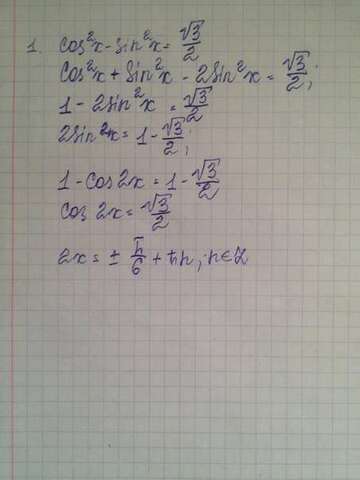 1. cos²x - sin²x = √3/2
cos²x + sin²x - 2sin²x = √3/2;
1 - 2sin²x = √3/2
2sin²x = 1 - √3/2;
1 - cos2x = 1 - √3/2
cos 2x = √3/2
2x = ± π/6 + πn, n∈Z